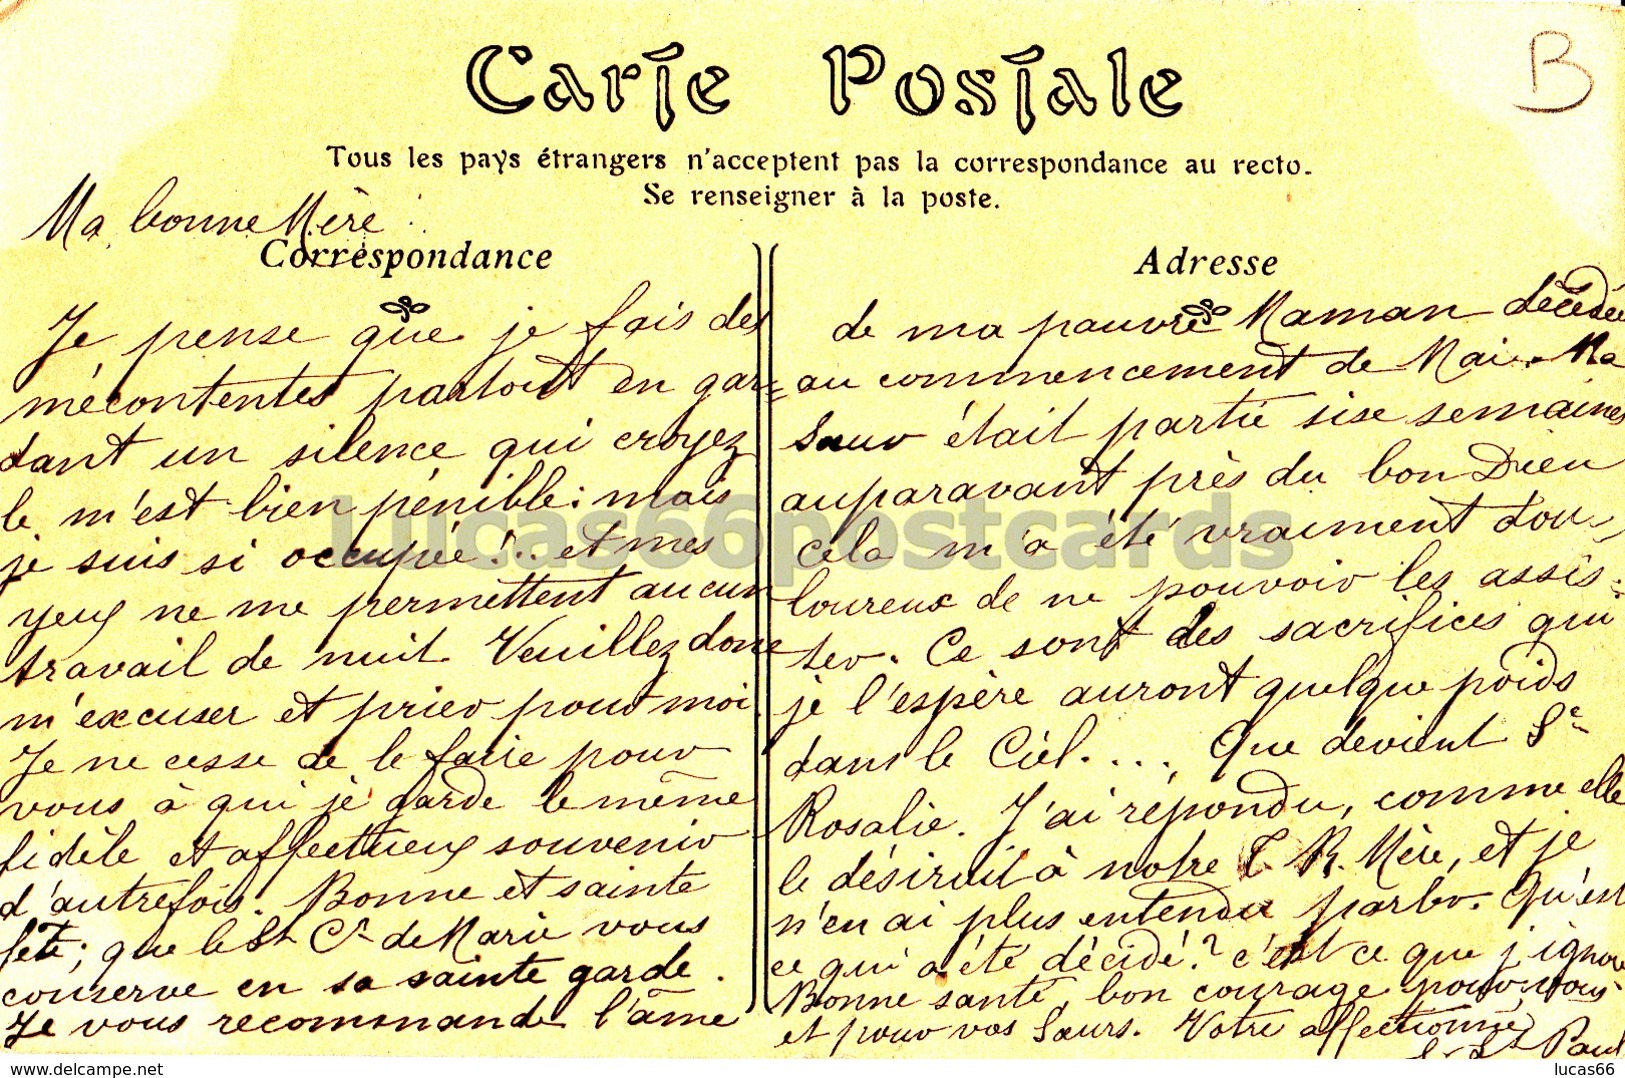 Carte Postale
B
Tous les pays étrangers n'acceptent pas la correspondance au recto.
Se renseigner à la poste.
Ma bonne Mère
Correspondance
Je pense que je fais des
mécontentes partout en gar=
dant un silence qui croyez
le m'est bien pénible: mais
je suis si occupée!.. et mes
yeux ne me permettent aucun
travail de nuit. Veuillez donc
m'excuser et prier pour moi.
Je ne cesse de le faire pour
vous à qui je garde le même
fidèle et affectueux souvenir
d'autrefois. Bonne et sainte
fête; que le St Cr de Marie vous
conserve en sa sainte garde.
Je vous recommande l'âme
Adresse
de ma pauvre Maman décédée
au commencement de Mai. Ma
Sœur était partie sise semaines
auparavant près du bon Dieu
cela m'a été vraiment dou-
loureux de ne pouvoir les assis-
ter. Ce sont des sacrifices qui
je l'espère auront quelque poids
dans le Ciel.... Que devient Sr
Rosalie. J'ai répondu, comme elle
le désirait à notre T. R. Mère, et je
n'en ai plus entendu parler. Qu'est
ce qui a été décidé? c'est ce que j'ignore
Bonne santé, bon courage pour vous
et pour vos Sœurs. Votre affectionnée
St Paul
Lucas66postcards
delcampe.net
lucas66